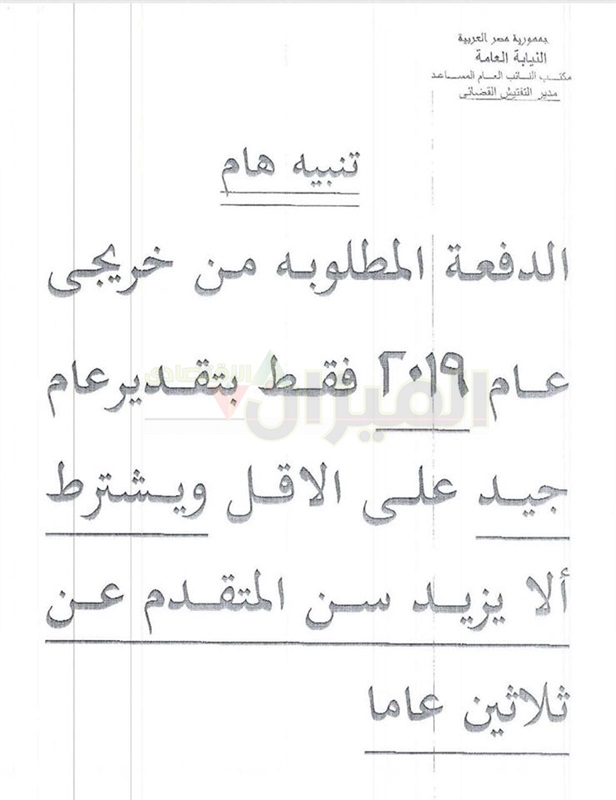 جمهورية مصر العربية
النيابة العامة
مكتب النائب العام المساعد
مدير التفتيش القضائى
تنبيه هام
الدفعة المطلوبه من خريجى
عام ٢٠١٩ فقط بتقدير عام
جيد على الاقل ويشترط
ألا يزيد سن المتقدم عن
ثلاثين عاما
الميزان
الاقتصادى